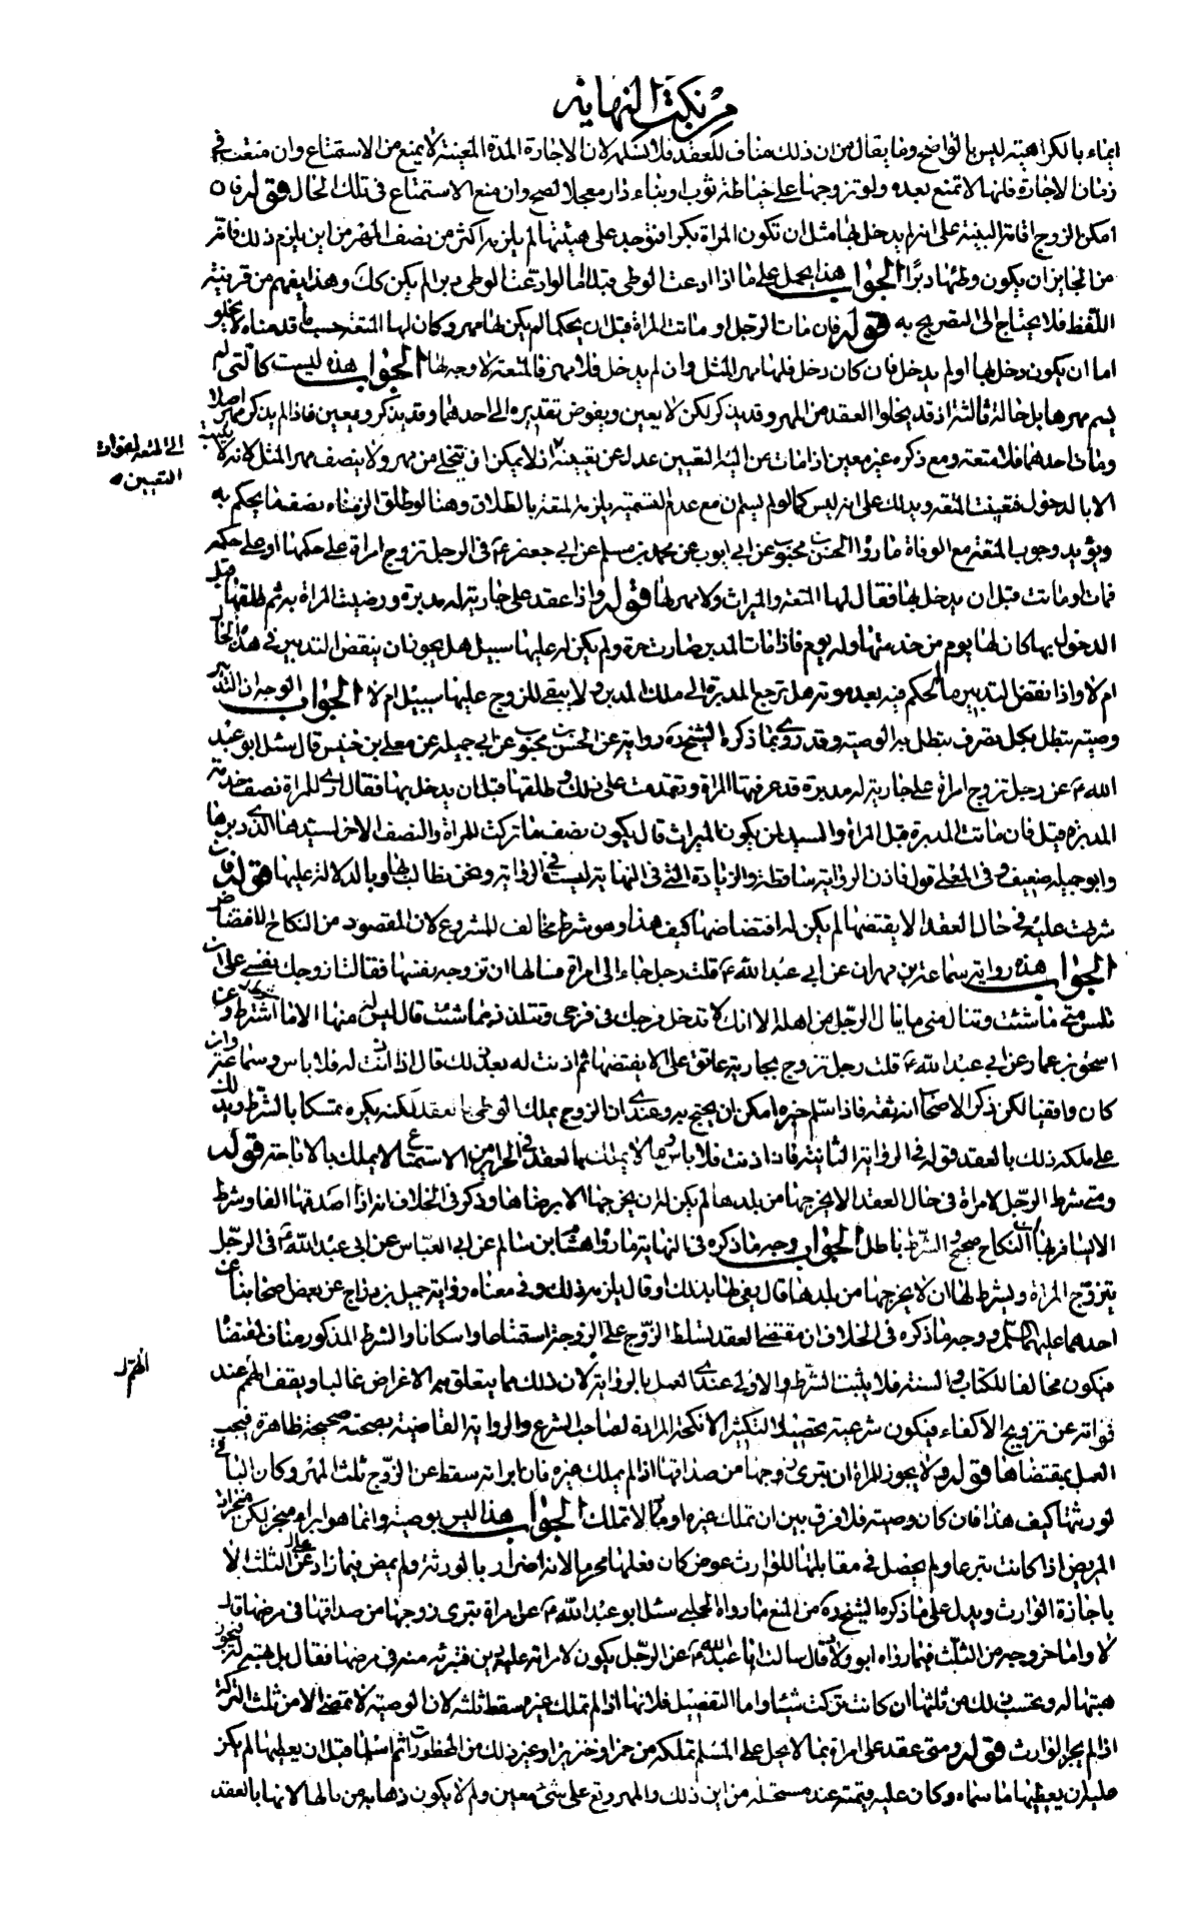 من نكت النهاية
ايماء بالكراهية ليس بالواضح وما يقال من ان ذلك مناف للعقد فلا نسلم لان الاجارة المدة المعينة لا يمنع من الاستمتاع وان منعت في
زمان الاجارة فانها لا تمنع بعده ولو تزوجها على خياطة ثوب او بناء دار معجلا لصح وان منع الاستمتاع في تلك الحال قوله فان
امكن الزوج اقامة البينة على انه لم يدخل بها مثل ان تكون المراة بكرا فتوجد على هيئتها لم يلزمه اكثر من نصف المهر من اين يلزم ذلك فانه
من الجايز ان يكون وطئها دبرا الجواب هذا يحمل على ما اذا ادعت الوطى قبلا اما لو ادعت الوطى دبرا لم يكن كك وهذا يفهم من قرينة
اللفظ فلا يحتاج الى التصريح به قوله فان مات الرجل او ماتت المراة قبل ان يحكما لم يكن لها مهر وكان لها المتعة حسب ما قدمناه لا يخلو
اما ان يكون دخل بها او لم يدخل فان كان دخل فلها مهر المثل وان لم يدخل فلا مهر فالمتعة لا وجه لها الجواب هذه ليست كالتي لم
يسم مهرها بل حالة ثالثة اذ قد يخلوا العقد من المهر وقد يذكر لكن لا يعين ويفوض تقديره الى احدهما وقد يذكر ويعين فاذا لم يذكر مهر اصلا
ومات احدهما فلا متعة ومع ذكره غير معين اذا مات من اليه التعيين عدل عن تعيينه اذ لا يمكن ان تتخلى من مهر ولا ينصف مهر المثل لانه لا يثبت
الى المتعة لفوات
التعيين
الا بالدخول فتعينت المتعة ويدلك على انه ليس كما لو لم يسم ان مع عدم التسمية يلزمه المتعة بالطلاق وهنا لو طلق الزمناه نصف ما يحكم به
ويؤيد وجوب المتعة مع الوفاة ما رواه الحسن بن محبوب عن ابي ايوب عن محمد بن مسلم عن ابي جعفر ع في الرجل تزوج امراة على حكمها او على حكمه
فمات او ماتت قبل ان يدخل بها فقال لها المتعة والميراث ولا مهر لها قوله واذا عقد على جارية له مدبرة ورضيت المراة به ثم طلقها قبل
الدخول بها كان لها يوم من خدمتها وله يوم فاذا مات المدبر صارت حرة ولم يكن له عليها سبيل هل يجوز ان ينقض التدبير في هذا الحال
ام لا واذا نقض التدبير ما الحكم فيه بعد موته هل ترجع المدبرة الى ملك المدبر ولا يبقي للزوج عليها سبيل ام لا الجواب الوجه ان التدبير
وصية يبطل بكل تصرف يبطل به الوصية وقد روى بما ذكره الشيخ ره رواية عن الحسن بن محبوب عن ابي جميلة عن معلى بن خنيس قال سئل ابو عبد
الله ع عن رجل تزوج امراة على جارية له مدبرة قد عرفتها المراة وتقدمت على ذلك وطلقها قبل ان يدخل بها فقال ارى للمراة نصف خدمة
المدبرة قيل فان ماتت المدبرة قبل المراة والسيد لمن يكون الميراث قال يكون نصف ما تركت للمراة والنصف الاخر لسيدها الذي دبرها
وابو جميلة ضعيف وفي المعلى قول فاذن الرواية ساقطة والزيادة التي في النهاية ليست في الرواية ونحن نطالب بها وبالدلالة عليها قوله فان
شرطت عليه في حال العقد الا يقتضها لم يكن له اقتضاضها كيف هذا وهو شرط مخالف للمشروع لان المقصود من النكاح الاقتضاض
الجواب هذه رواية سماعة بن مهران عن ابي عبد الله ع قلت رجل جاء الى امراة فسالها ان تزوجه نفسها فقالت ازوجك نفسي على ان
تلمس مني ما شئت وتنال مني ما ينال الرجل من اهله الا انك لا تدخل فرجك في فرجي وتتلذذ بما شئت قال ليس له منها الا ما اشترط وعن
اسحق بن عمار عن ابي عبد الله ع قلت رجل تزوج بجارية عاتق على الا يقتضها ثم اذنت له بعد ذلك قال اذا اذنت له فلا باس وسماعة وان
كان واقفيا لكن ذكر الاصحاب انه ثقة فاذا سلم خبره امكن ان يحتج به وعندي ان الزوج يملك الوطى بالعقد لكنه يكره تمسكا بالشرط ويدلك
على ملكه ذلك بالعقد قوله في الرواية الثانية فاذا اذنت فلا باس وما لا يملك بالعقد في الحراير من الاستمتاع لا يملك بالاباحة قوله
ومتى شرط الرجل لامراة في حال العقد الا يخرجها من بلدها لم يكن له ان يخرجها الا برضاها وذكر في الخلاف انه اذا اصدقها الفا وشرط
الا يسافر بها النكاح صحيح والشرط باطل الجواب وجه ما ذكره في النهاية ما رواه هشام بن سالم عن ابي العباس عن ابي عبد الله ع في الرجل
يتزوج المراة ويشرط لها ان لا يخرجها من بلدها قال يفي لها بذلك او قال يلزمه ذلك وفي معناه رواية جميل بن دراج عن بعض اصحابنا عن
احدهما عليهما السلم ووجه ما ذكره في الخلاف ان مقتضى العقد تسلط الزوج على الزوجة استمتاعا واسكانا والشرط المذكور مناف لمقتضاه
فيكون مخالفا للكتاب والسنة فلا يثبت الشرط والاولى عندي العمل بالرواية لان ذلك مما يتعلق به الاغراض غالبا ويقف الهم عند
الهمم
فواته عن تزويج الاكفاء فيكون شرعية تحصيلا لتكثير الانكحة المرادة لصاحب الشرع والرواية القاضية بصحته صحيحة ظاهرة فيجب
العمل بمقتضاها قوله ولا يجوز للمراة ان تبرئ زوجها من صداقها اذا لم يملك غيره فان ابراته سقط عن الزوج ثلث المهر وكان الباقي
لورثتها كيف هذا فان كان وصية فلا فرق بين ان تملك غيره او ما لا تملك الجواب هذا ليس بوصية وانما هو ابراء منجز لكن منجزات
المريض اذا كانت تبرعا ولم يحصل في مقابلتها للوارث عوض كان فعلها محرما لانه اضرار بالورثة ولم يمض فيما زاد عن الثلث الا
باجازة الوارث ويدل على ما ذكره الشيخ ره من المنع ما رواه الحلبي سئل ابو عبد الله ع عن امراة تبرئ زوجها من صداقها في مرضها قال
لا واما خروجه من الثلث فيما رواه ابو ولاد قال سالت ابا عبد الله ع عن الرجل يكون لامراته عليه دين فتبرئه منه في مرضها فقال بل تهبه له فتجوز
هبتها له ويحتسب ذلك من ثلثها ان كانت تركت شيئا واما التفصيل فلانها اذا لم تملك غيره سقط ثلثه لان الوصية لا تمضي الا من ثلث التركة
اذا لم يجز الوارث قوله ومتى عقد على امراة بما لا يحل على المسلم تملكه من خمر او خنزير او غير ذلك من المحظورات ثم اسلما قبل ان يعطيها لم يكن
عليه ان يعطيها ما سماه وكان عليه قيمته عند مستحله من اين ذلك والمهر وقع على شئ معين ولم لا يكون ذهابه من مالها لانها بالعقد